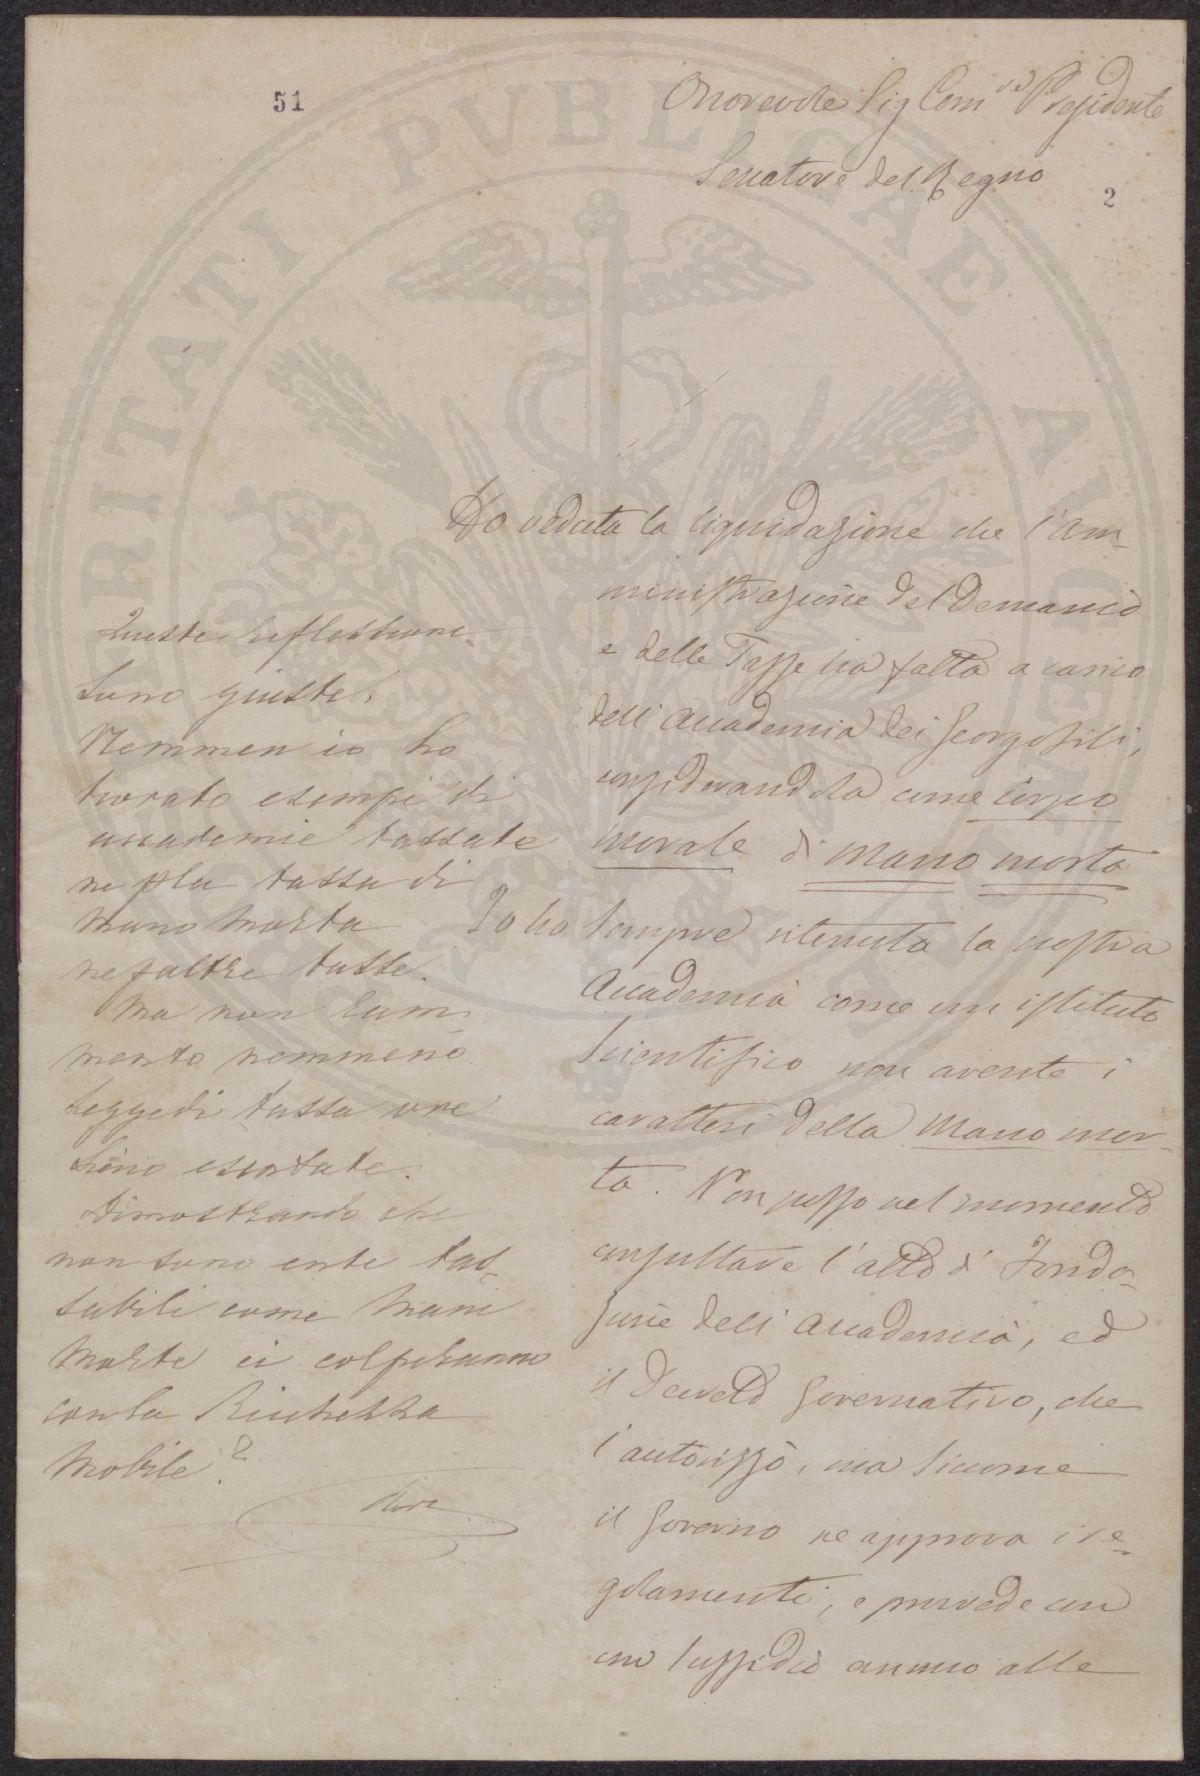 51
Onorevole Sig Com re Presidente
Senatore del Regno
2
Ho veduta la liquidazione che l'Am-
ministrazione del Demanio
e delle Tasse ha fatta a carico
dell'Accademia dei Georgofili,
considerandola come Corpo
morale di mano morta
Io ho sempre ritenuta la nostra
Accademia come un istituto
scientifico non avente i
caratteri della mano mor-
ta. Non posso nel momento
consultare l'atto di Fonda-
zione dell'Accademia, ed
il Decreto Governativo, che
l'autorizzò, ma siccome
il Governo ne approva i re-
golamenti, e provvede con
un sussidio annuo alle
Queste riflessioni
sono giuste.
Nemmen io ho
trovato esempi di
accademie tassate
ne pla tassa di
mano morta
ne paltre tasse.
Ma non ram-
mento nemmeno
leggi di tassa ove
sieno esentate.
Dimostrando che
non sono ente tas-
sabili come Mani
Morte ci colpiranno
con la Ricchezza
Mobile?
PUBLICAE